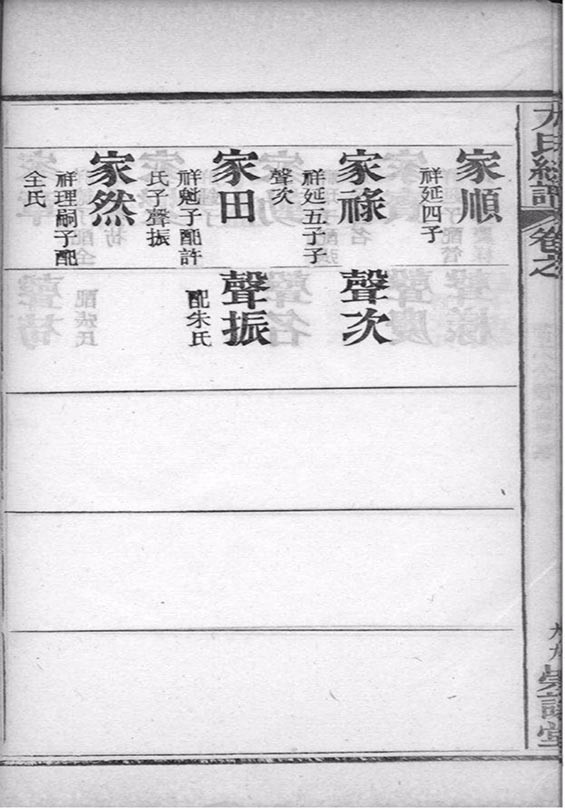 方氏總譜
卷之
家順
祥延四子
家祿
祥延五子子
聲次
家田
祥魁子配許
氏子聲振
家然
祥理嗣子配
仝氏
聲次
聲振
配朱氏